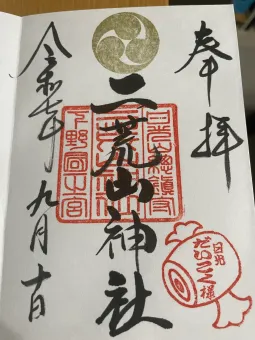 奉拝
二荒山神社
日光総鎮守
下野国一宮
日光
だいこく様
令和七年九月十日